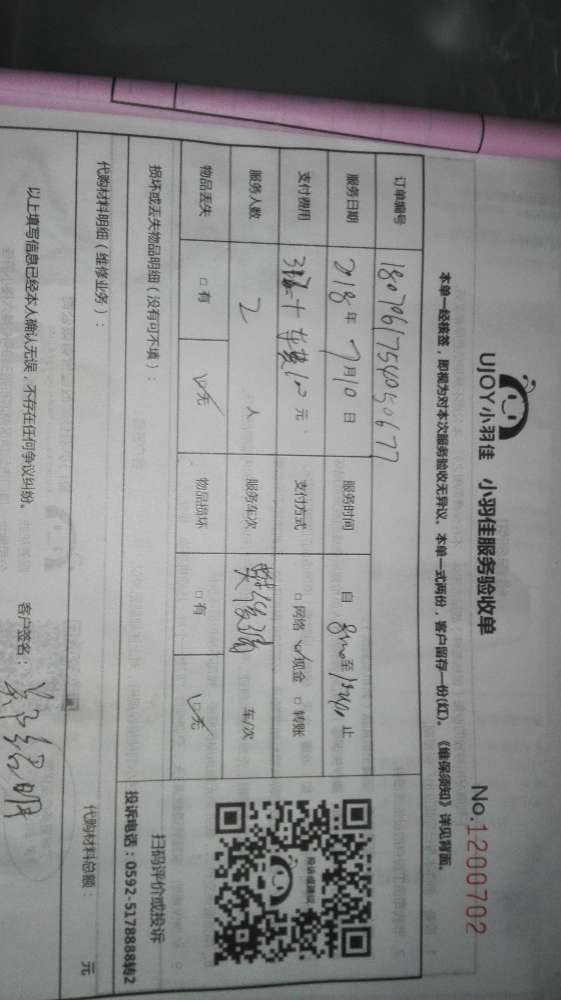 UJOY小羽佳 小羽佳服务验收单
No.1200702
本单一经核签，即视为对本次服务验收无异议。本单一式两份，客户留存一份(红)。《维保须知》详见背面。
订单编号 180706175405067
服务日期 218年7月10日 服务时间 自 至 止
支付费用 车费10元 支付方式 □网络 ☑现金 □转账
服务人数 2人 服务车次 车/次
物品丢失 □有 ☑无 物品损坏 □有 ☑无
投诉或建议
扫码评价或投诉
投诉电话：0592-5178888转2
损坏或丢失物品明细（没有可不填）：
代购材料明细（维修业务）： 代购材料总额： 元
以上填写信息已经本人确认无误，不存在任何争议纠纷。 客户签名：